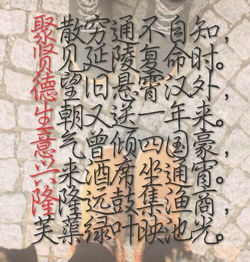 聚散穷通不自知，
贤见延陵复命时。
德望旧悬霄汉外，
生朝又送一年来。
意气曾倾四国豪，
兴来酒席坐通宵。
隆隆远鼓集渔商，
芙蕖绿叶映池光。